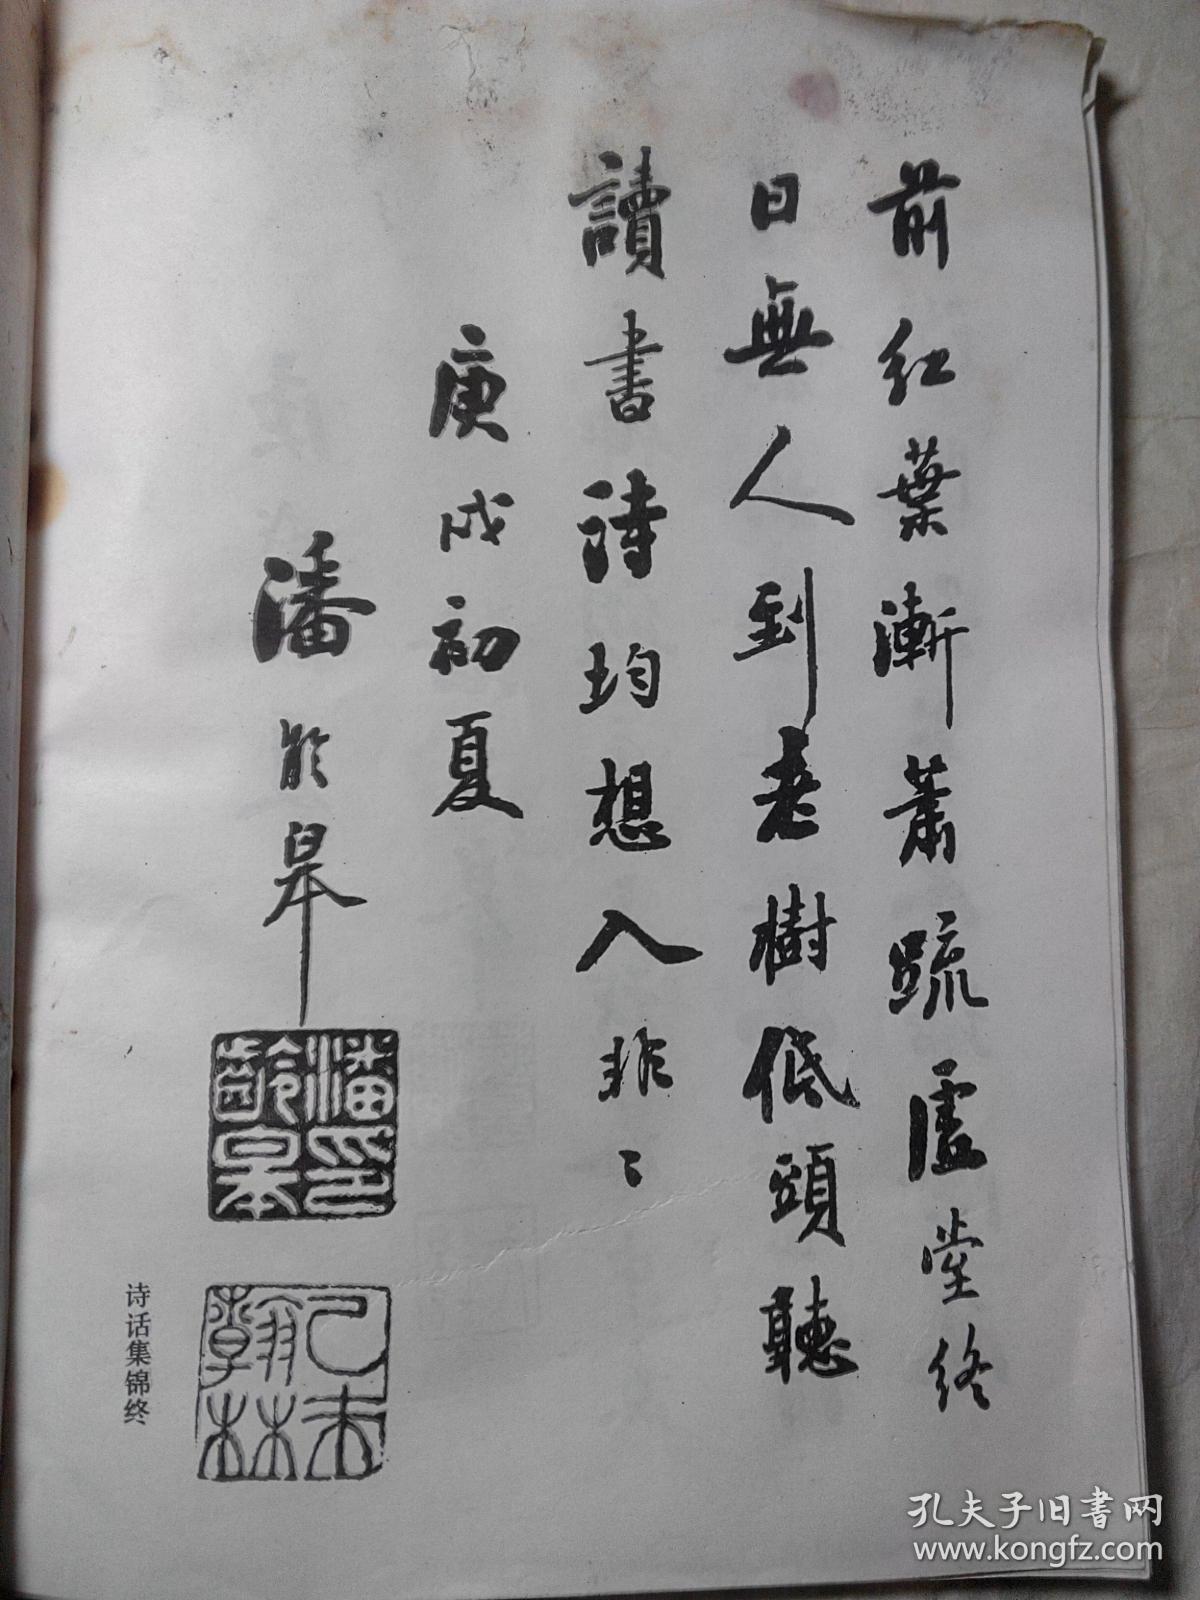 前紅葉漸蕭疏虛堂終
日無人到老樹低頭聽
讀書詩均想入非〻
庚戌初夏
潘齡皋
潘印齡皋
己未翰林
诗话集锦终
孔夫子旧书网
www.kongfz.com